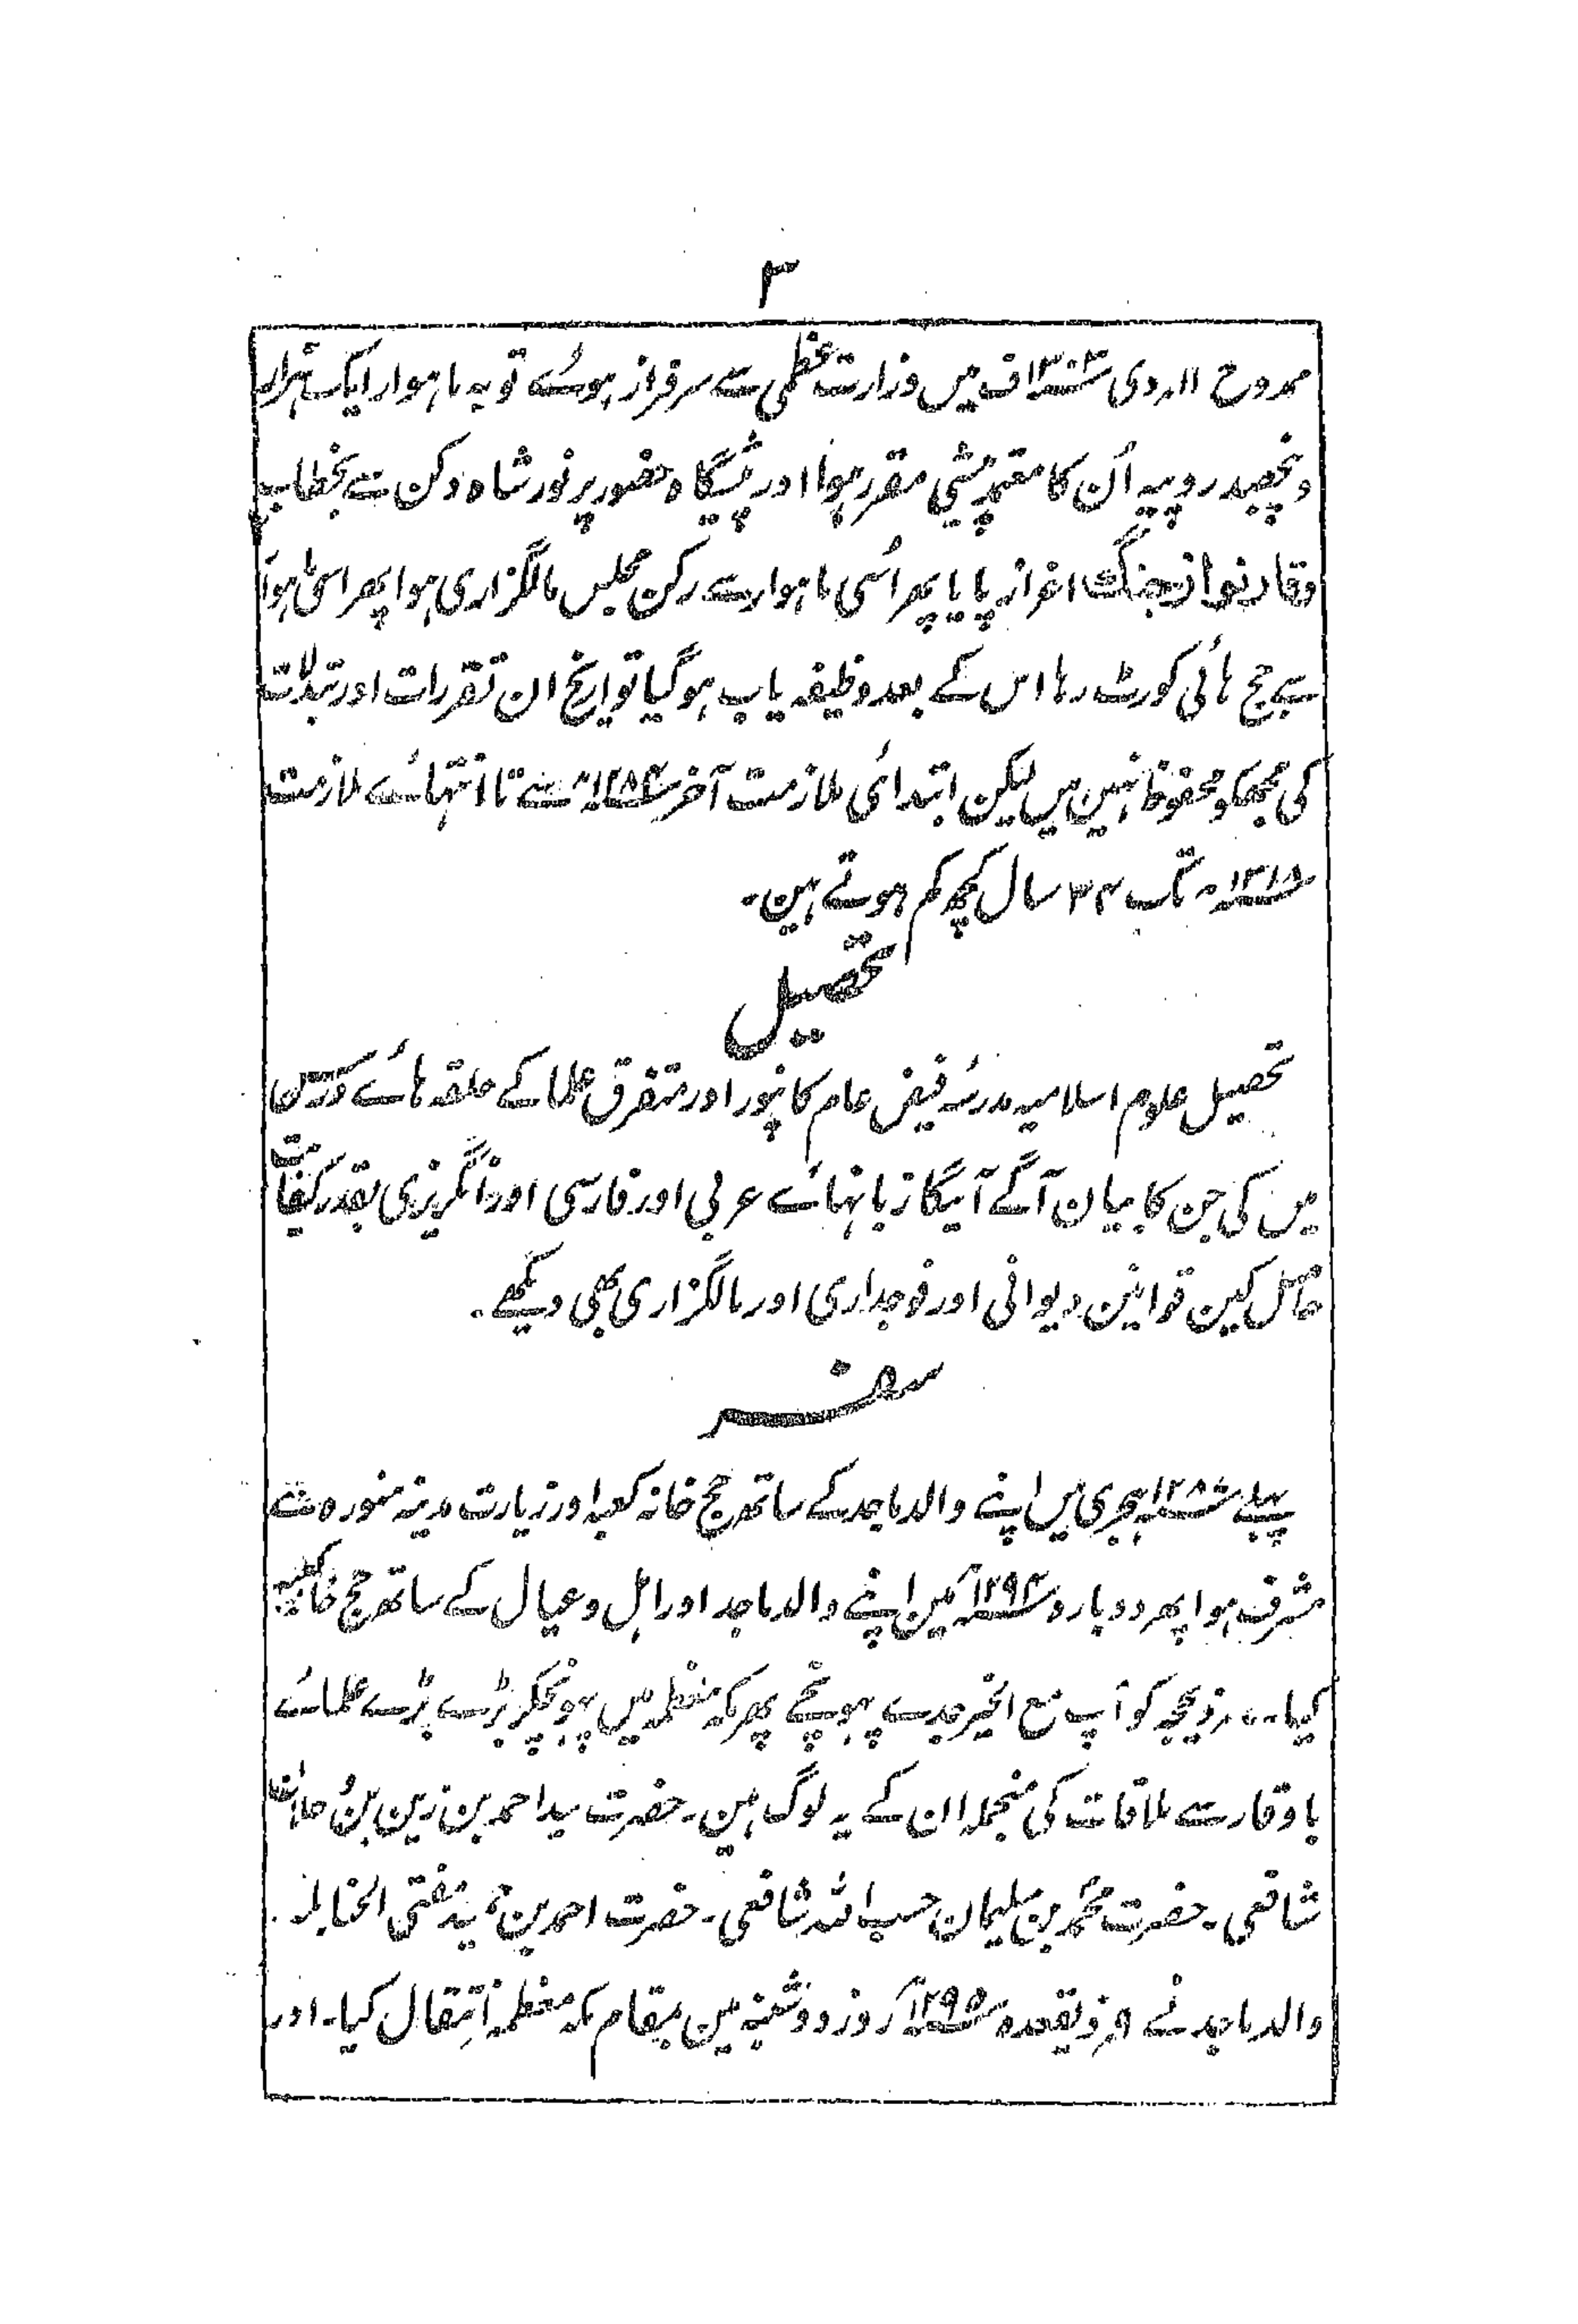 ۳
ممدوح ۱۱ ردی ۱۳۰۳ف میں وزارت عظمی سے سرفراز ہوئے تو بہ ماہوار ایک ہزار
و پنجصد روپیہ اُن کا معتمد پیشی مقرر ہوا اور پیشگاہ حضور پر نور شاہ دکن سے بخطاب
وقار نواز جنگ اعزاز پایا پھر اُسی ماہوار سے رکن مجلس مالگزاری ہوا پھر اسی ماہوار
سے جج ہائی کورٹ رہا اس کے بعد وظیفہ یاب ہوگیا تواریخ ان تقررات اور تبدلات
کی مجھکو محفوظ نہین ہیں لیکن ابتدائی ملازمت آخر ۱۲۸۴ سے تا انتہائے ملازمت
۱۳۱۸ تک ۳۴ سال کچھ کم ہوتے ہین۔
تحصیل
تحصیل علوم اسلامیہ مدرسۂ فیض عام کانپور اور متفرق علما کے حلقہ ہائے درس
میں کی جن کا بیان آگے آئیگا زبانہائے عربی اور فارسی اور انگریزی بقدر کفایت
حاصل کین قوانین دیوانی اور فوجداری اور مالگزاری بھی دیکھے۔
سفر
پہلے ہجری میں اپنے والد ماجد کے ساتھ حج خانہ کعبہ اور زیارت مدینہ منورہ سے
مشرف ہوا پھر دوبارہ ۱۲۹۴ مین اپنے والد ماجد اور اہل و عیال کے ساتھ حج خانہ کعبہ
کیا۔ ذیحجہ کو آپ مع الخیر جدے پہونچے پھر مکہ معظمہ میں پہونچکر بڑے بڑے علمائے
باوقار سے ملاقات کی منجملہ ان کے یہ لوگ ہین۔ حضرت سید احمد بن زین بن دحلان
شافعی۔ حضرت محمد بن سلیمان حسب اللہ شافعی۔ حضرت احمد بن مفتی الحنابلہ۔
والد ماجد نے ذیقعدہ ۱۲۹۵ روز دوشنبہ مین بمقام مکہ معظمہ انتقال کیا۔ اور